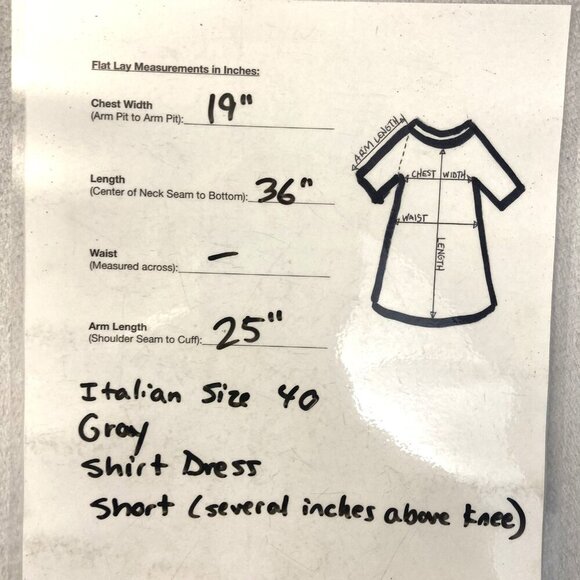 Flat Lay Measurements in Inches:
Chest Width
(Arm Pit to Arm Pit): 19"
Length
(Center of Neck Seam to Bottom): 36"
Waist
(Measured across): —
Arm Length
(Shoulder Seam to Cuff): 25"
ARM LENGTH
CHEST WIDTH
WAIST
LENGTH
Italian Size 40
Gray
Shirt Dress
Short (several inches above knee)